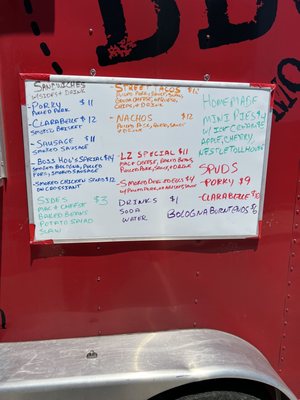 SANDWICHES
W/SIDES + DRINK
-PORKY $11
PULLED PORK
-CLARABELLE $12
SMOKED BRISKET
-SAUSAGE $11
-SMOKED SAUSAGE
-BOSS HOG'S SPECIAL $14
SMOKED BOLOGNA, PULLED
PORK, SMOKED SAUSAGE
-SMOKED CHICKEN SALAD $12
ON CROISSANT
SIDES $3
MAC + CHEESE
BAKED BEANS
POTATO SALAD
SLAW
-STREET TACOS $12
PULLED PORK, SAUCE, SLAW,
+ DRINK
-NACHOS $12
PULLED PORK, QUESO, SAUCE
+ DRINK
LZ SPECIAL $11
MAC + CHEESE, BAKED BEANS,
PULLED PORK, SAUCE, + DRINK
-SMOKED DEVILED EGGS $4
W/PULLED PORK
DRINKS $1
SODA
WATER
HOMEMADE
MINI PIES $4
W/ICE CREAM
APPLE, CHERRY,
NESTLE TOLLHOUSE
SPUDS
-PORKY $9
-CLARABELLE $10
BOLOGNA BURNT ENDS $6